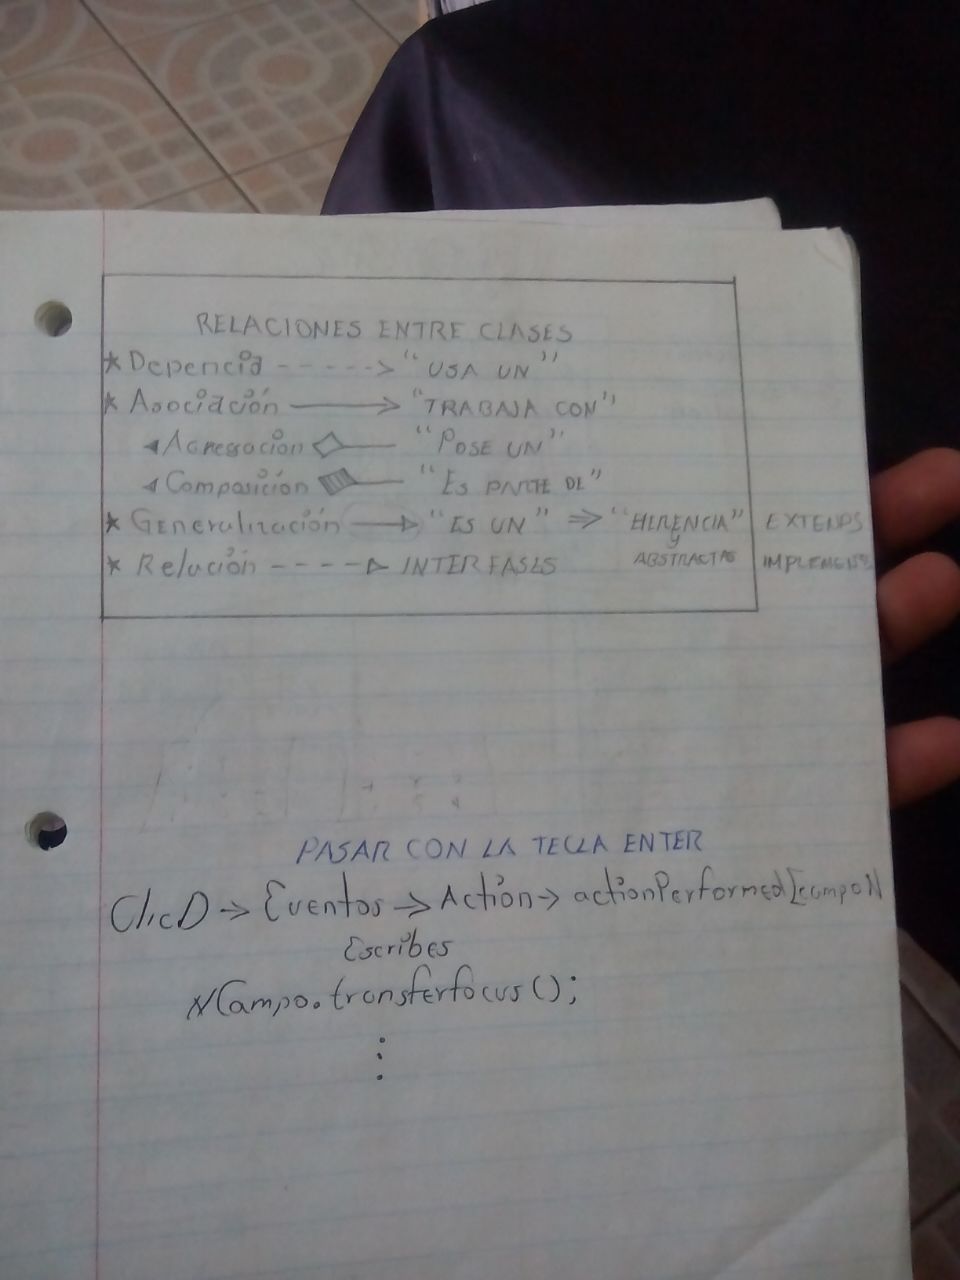 RELACIONES ENTRE CLASES
* Depencia -----> "USA UN"
* Asociación ⟶ "TRABAJA CON"
Agregación ◇— "POSE UN"
Composición "ES PARTE DE"
* Generalización —▷ "ES UN" ⇒ "HERENCIA" EXTENDS
y
* Relación ----▷ INTERFASES ABSTRACTAS IMPLEMENS
PASAR CON LA TECLA ENTER
ClicD → Eventos → Action → actionPerformed [campoN
Escribes
NCampo.transferfocus();
⋮